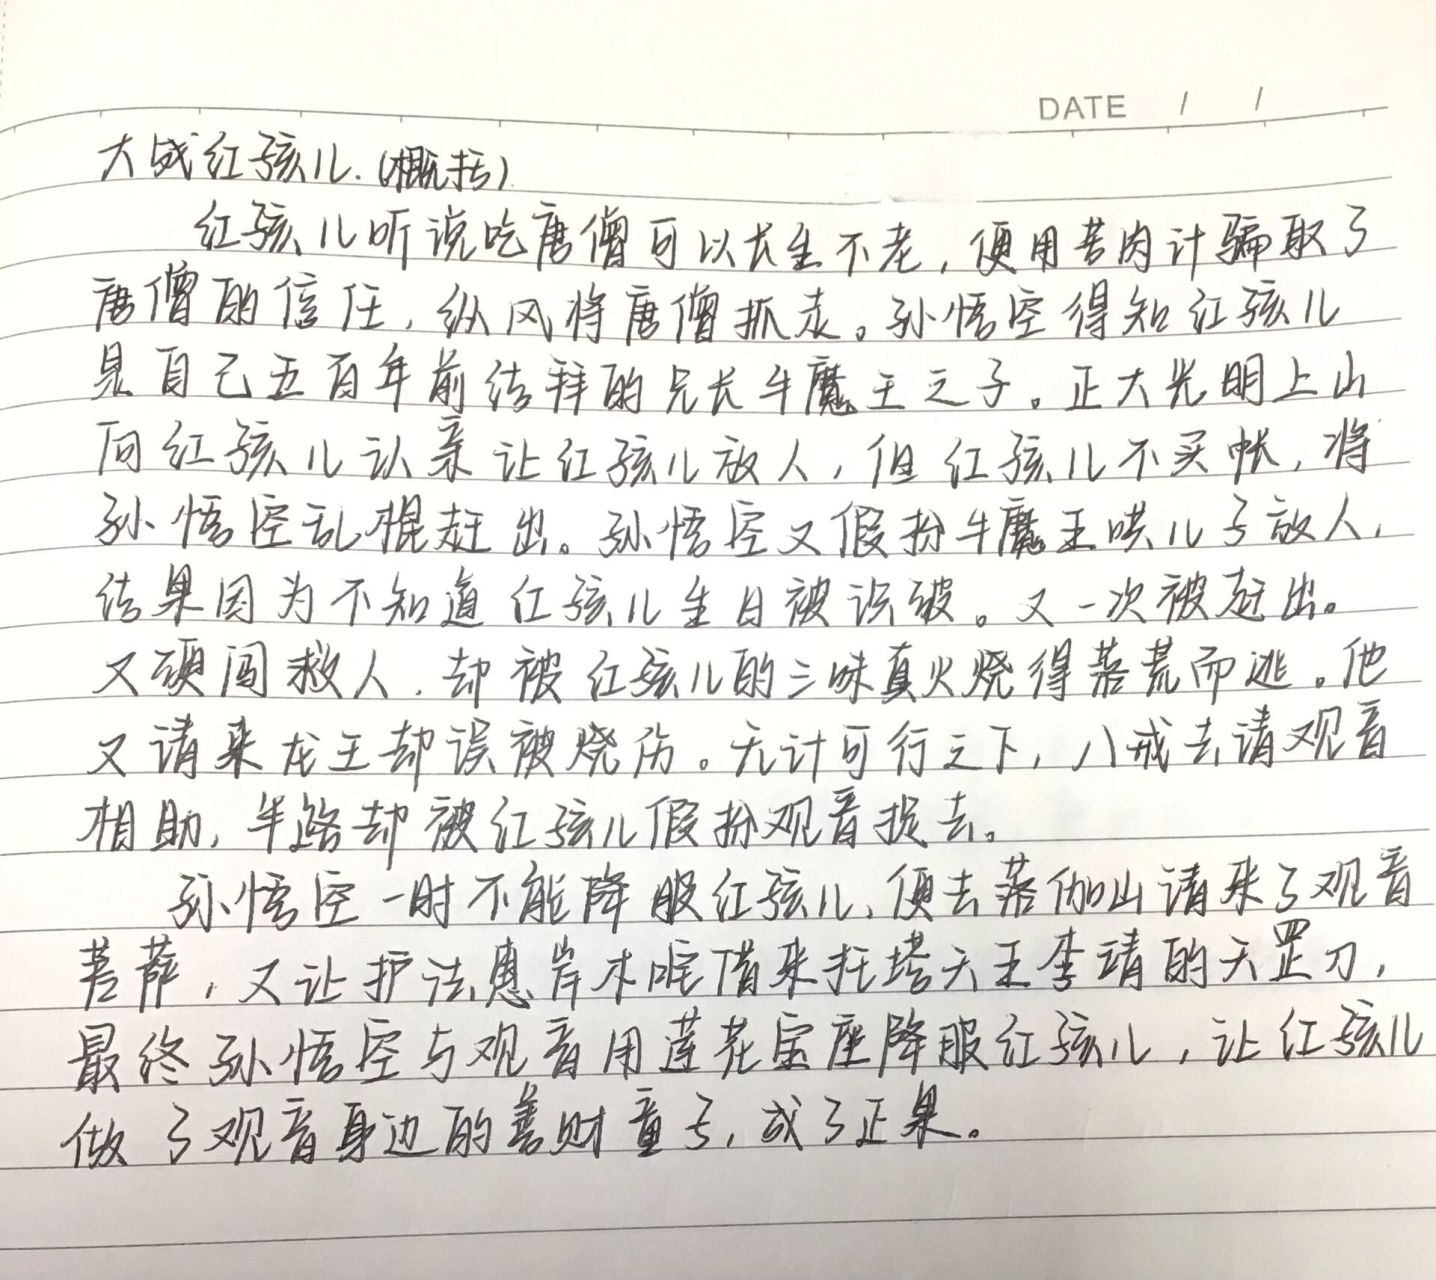 DATE / /
大战红孩儿.(概括)
红孩儿听说吃唐僧可以长生不老,便用苦肉计骗取了
唐僧的信任,纵风将唐僧抓走。孙悟空得知红孩儿
是自己五百年前结拜的兄长牛魔王之子。正大光明上山
向红孩儿认亲让红孩儿放人,但红孩儿不买帐,将
孙悟空乱棍赶出。孙悟空又假扮牛魔王哄儿子放人,
结果因为不知道红孩儿生日被识破。又一次被赶出。
又硬闯救人,却被红孩儿的三昧真火烧得落荒而逃。他
又请来龙王却误被烧伤。无计可行之下,八戒去请观音
相助,半路却被红孩儿假扮观音捉去。
孙悟空一时不能降服红孩儿、便去落伽山请来了观音
菩萨,又让护法惠岸木吒借来托塔天王李靖的天罡刀,
最终孙悟空与观音用莲花宝座降服红孩儿,让红孩儿
做了观音身边的善财童子,成了正果。